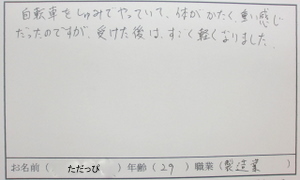 自転車をしゅみでやっていて、体がかたく重い感じ
だったのですが、受けた後は、すごく軽くなりました。
お名前（ ただっぴ ）年齢（29）職業（製造業）